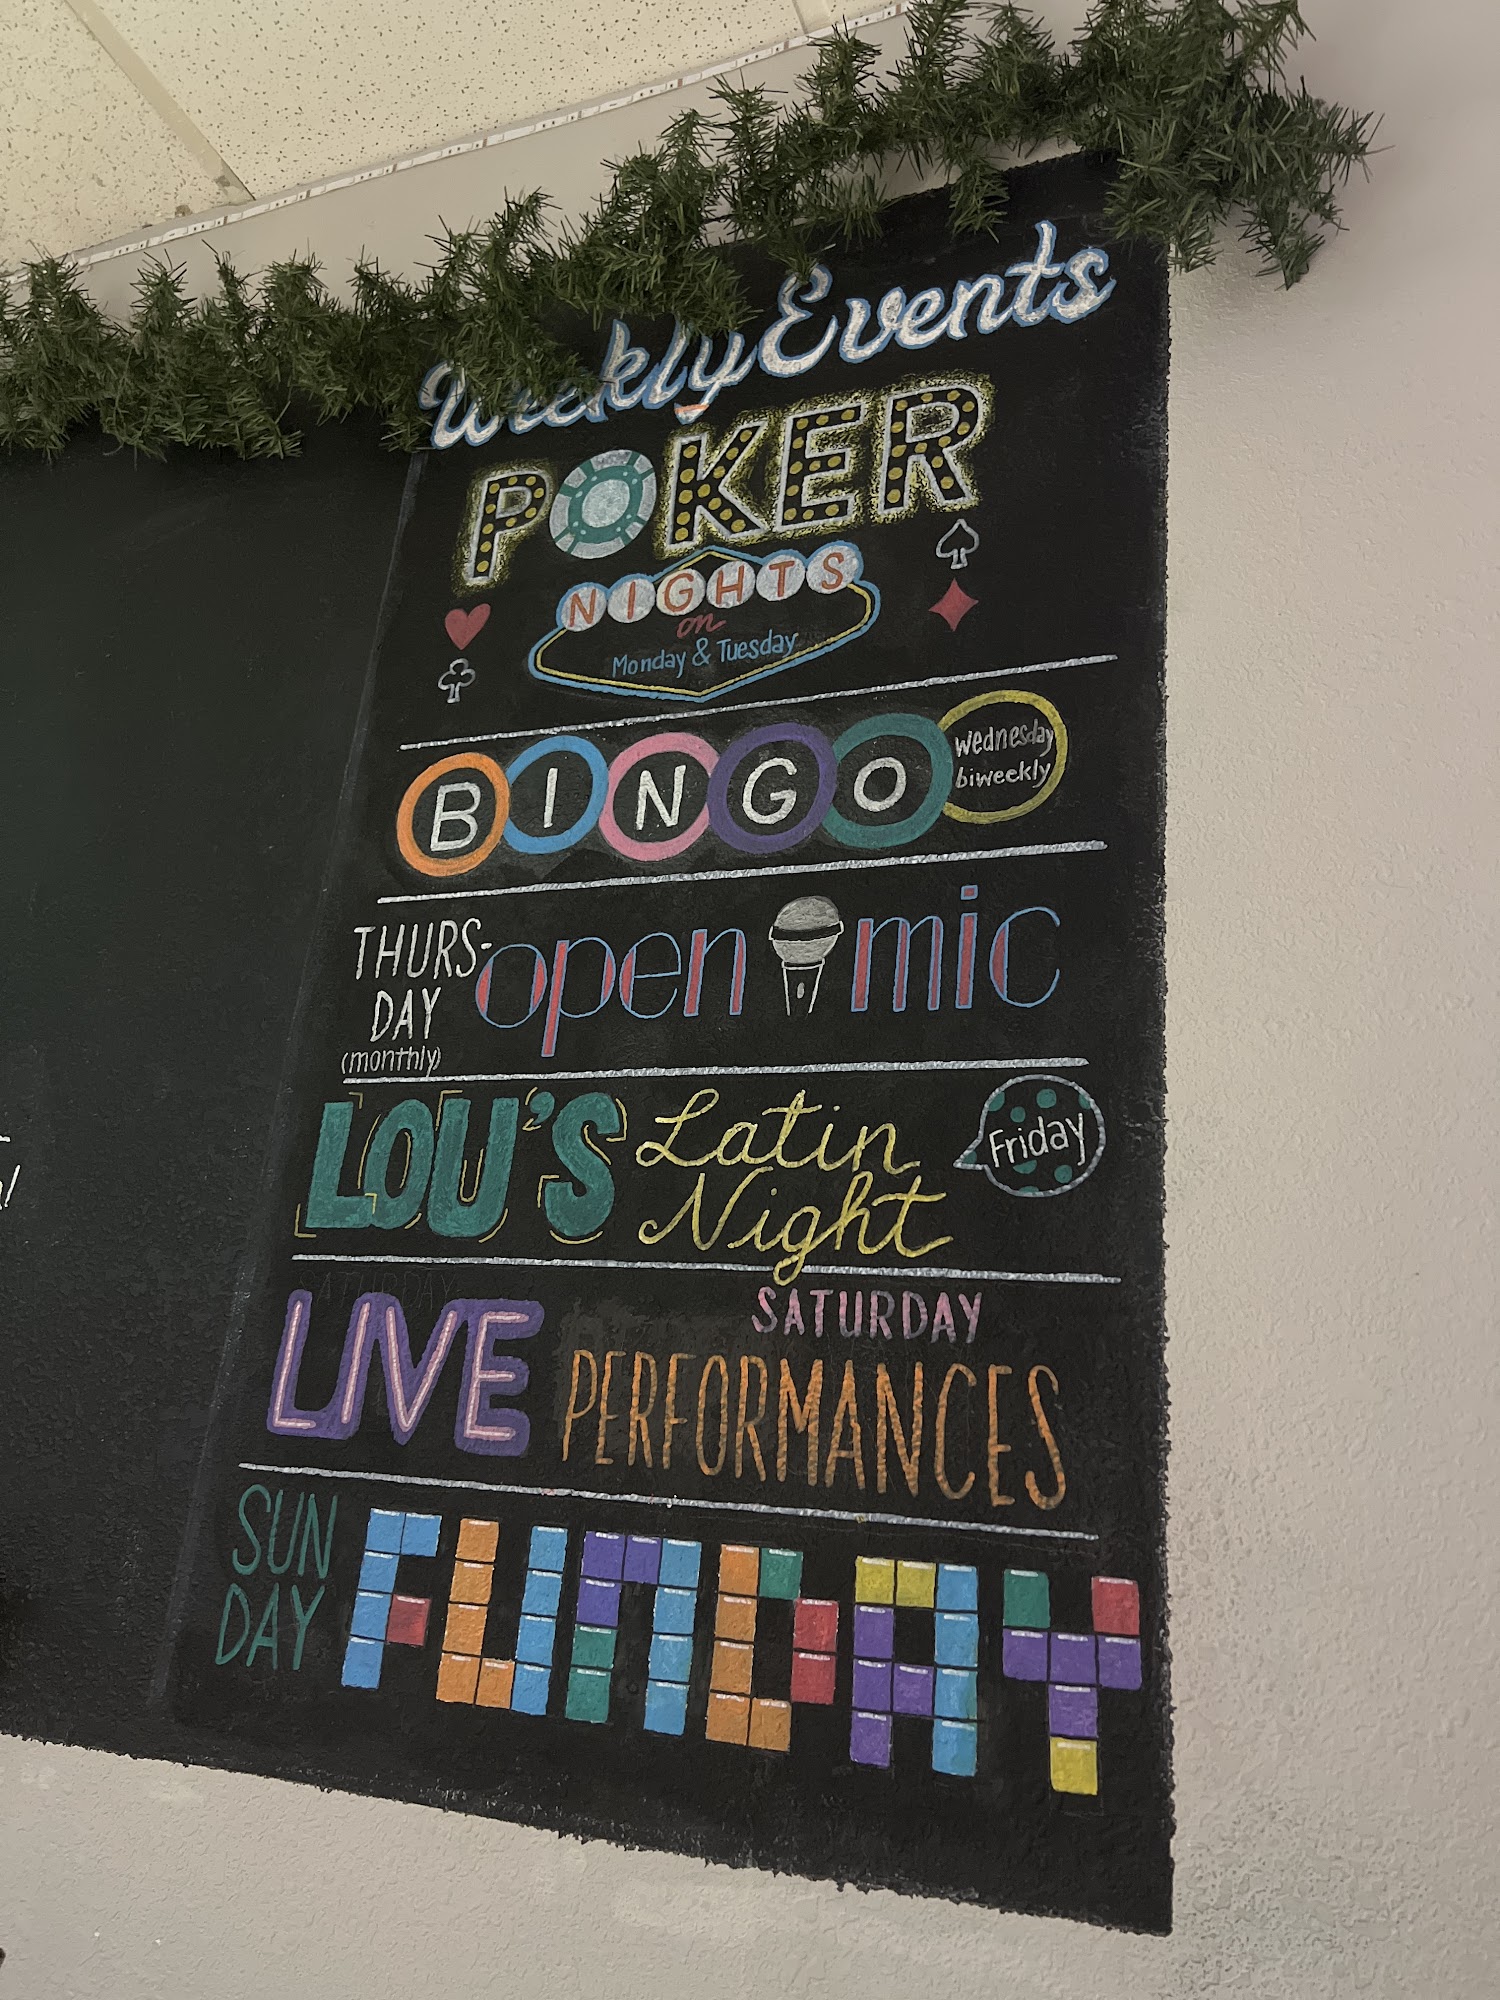 Weekly Events
POKER
NIGHTS
on
Monday & Tuesday
BINGO
Wednesday
biweekly
THURS-
DAY
(monthly)
open mic
LOU'S
Latin
Night
Friday
SATURDAY
LIVE
SATURDAY
PERFORMANCES
SUN
DAY
FUNDAY